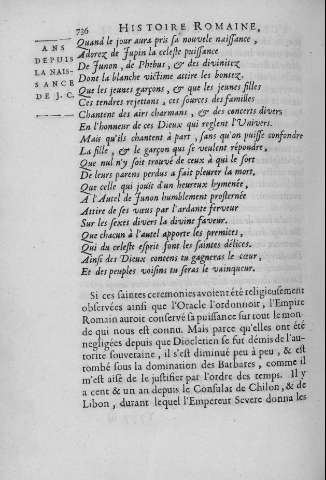 736 HISTOIRE ROMAINE,
ANS
DEPUIS
LA NAIS-
SANCE
DE J.C.
Quand le jour aura pris sa nouvele naissance,
Adorez de Jupin la celeste puissance
De Junon, de Phebus, & des divinitez
Dont la blanche victime attire les bontez.
Que les jeunes garçons, & que les jeunes filles
Ces tendres rejettons, ces sources des familles
Chantent des airs charmans, & des concerts divers
En l'honneur de ces Dieux qui reglent l'Univers.
Mais qu'ils chantent à part, sans qu'on puisse confondre
La fille, & le garçon qui se veulent répondre,
Que nul n'y soit trouvé de ceux à qui le sort
De leurs parens perdus a fait pleurer la mort,
Que celle qui joüit d'un heureux hymenée,
A l'Autel de Junon humblement prosternée
Attire de ses vœus par l'ardante ferveur
Sur les sexes divers la divine faveur.
Que chacun à l'autel apporte les premices,
Qui du celeste esprit sont les saintes délices.
Ainsi des Dieux contens tu gagneras le cœur,
Et des peuples voisins tu seras le vainqueur.
Si ces saintes ceremonies avoient été religieusement
observées ainsi que l'Oracle l'ordonnoit, l'Empire
Romain auroit conservé sa puissance sur tout le mon-
de qui nous est connu. Mais parce qu'elles ont été
negligées depuis que Diocletien se fut démis de l'au-
torité souveraine, il s'est diminué peu à peu, & est
tombé sous la domination des Barbares, comme il
m'est aisé de le justifier par l'ordre des temps. Il y
a cent & un an depuis le Consulat de Chilon, & de
Libon, durant lequel l'Empereur Severe donna les